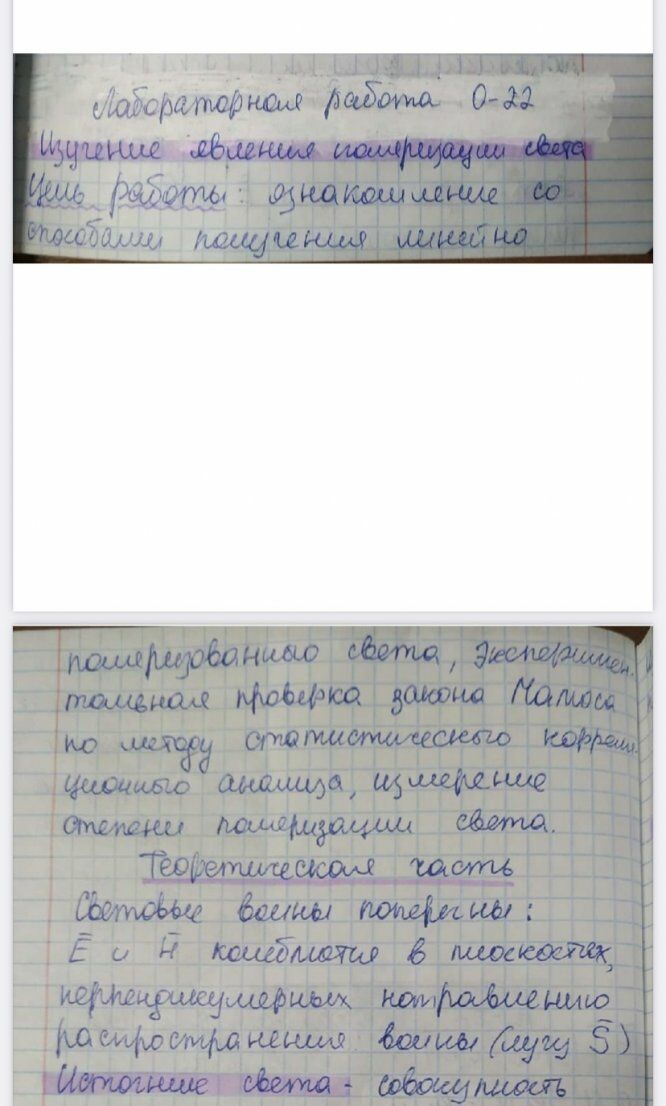 Лабораторная работа О-22
Изучение явления поляризации света
Цель работы: ознакомление со
способами получения линейно
поляризованного света, эксперимен-
тальная проверка закона Малюса
по методу статистического корреля-
ционного анализа, измерение
степени поляризации света.
Теоретическая часть
Световые волны поперечны:
E̅ и H̅ колеблются в плоскостях,
перпендикулярных направлению
распространения волны (лучу S̅)
Источник света - совокупность